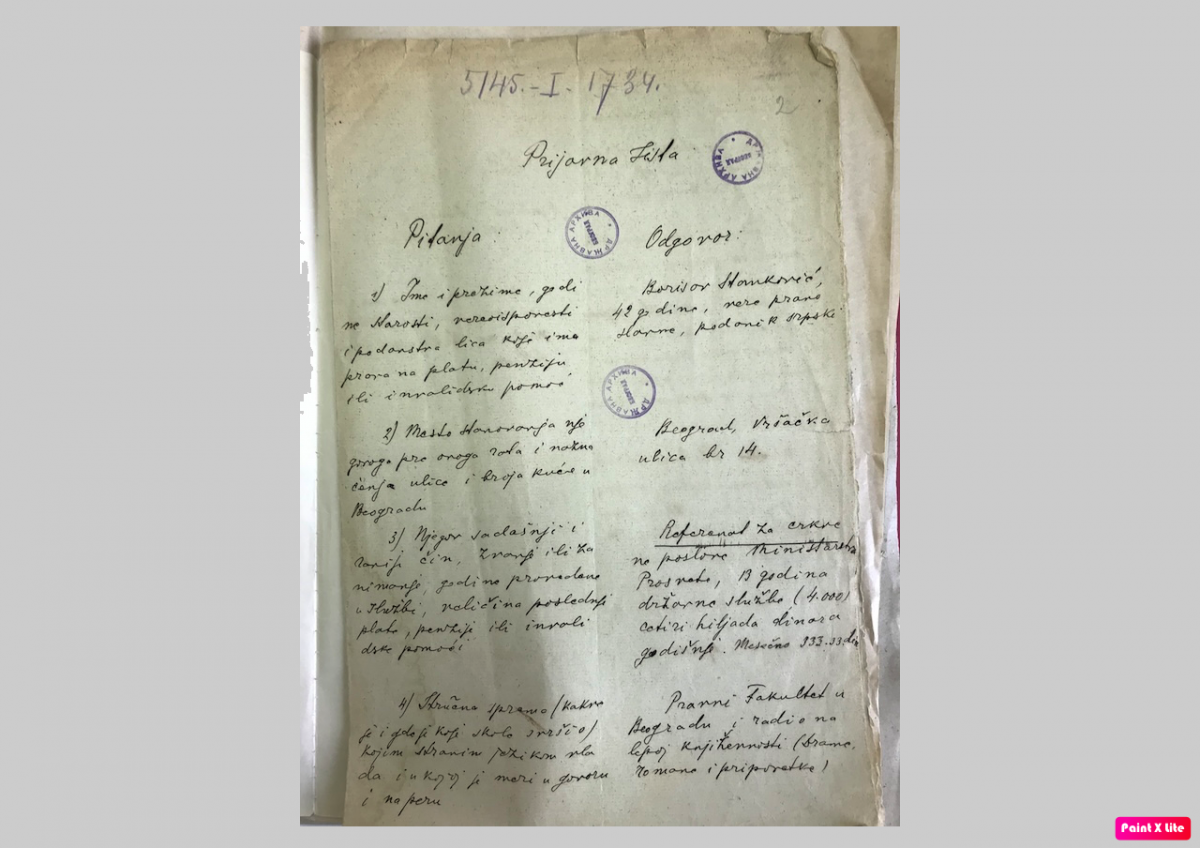 5145.-I. 1734.
2
Prijavna Lista
ДРЖАВНА АРХИВА
БЕОГРАД
Pitanja:
Odgovor:
ДРЖАВНА АРХИВА
БЕОГРАД
1) Ime i prezime, godi
ne starosti, veroispovesti
i podanstva lica koje ima
prava na platu, penziju
ili invalidsku pomoć
Borisav Stanković,
42 godine, vere pravo
slavne, podanik srpski
ДРЖАВНА АРХИВА
БЕОГРАД
2) Mesto stanovanja nje
govoga pre ovoga rata i nazna
čenje ulice i broja kuće u
Beogradu
Beograd, Vršačka
ulica br 14.
3) Njegov sadašnji i
raniji čin, zvanje ili za
nimanje, godine provedene
u službi, veličina poslednje
plate, penzije ili invali
dske pomoći
Referenat za crkve
ne poslove Ministarstva
Prosvete, 13 godina
državne službe (4.000)
četiri hiljada dinara
godišnje. Mesečno 333.33 din
4) Stručna sprema (kakve
je i gde je koje škole svršio)
kojim stranim jezikom vla
da i u kojoj je meri u govoru
i na peru
Pravni Fakultet u
Beogradu i radio na
lepoj književnosti (Drame,
romane i pripovetke)
Paint X Lite